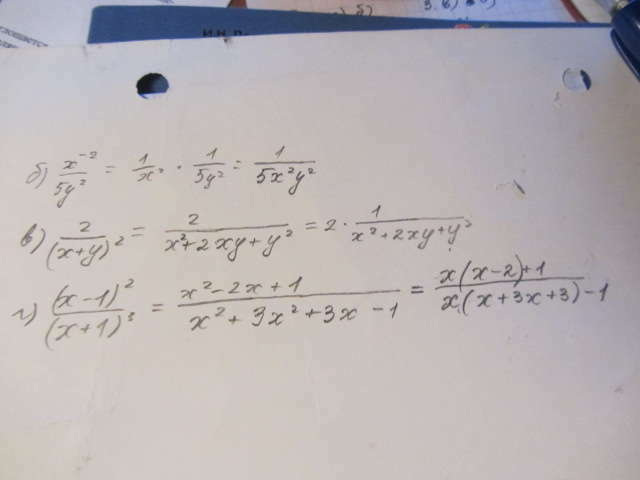 3. в) б)
б)
б) x⁻²/5y² = 1/x² · 1/5y² = 1/5x²y²
в) 2/(x+y)² = 2/x²+2xy+y² = 2 · 1/x²+2xy+y²
г) (x-1)²/(x+1)³ = x²-2x+1/x²+3x²+3x-1 = x(x-2)+1/x(x+3x+3)-1